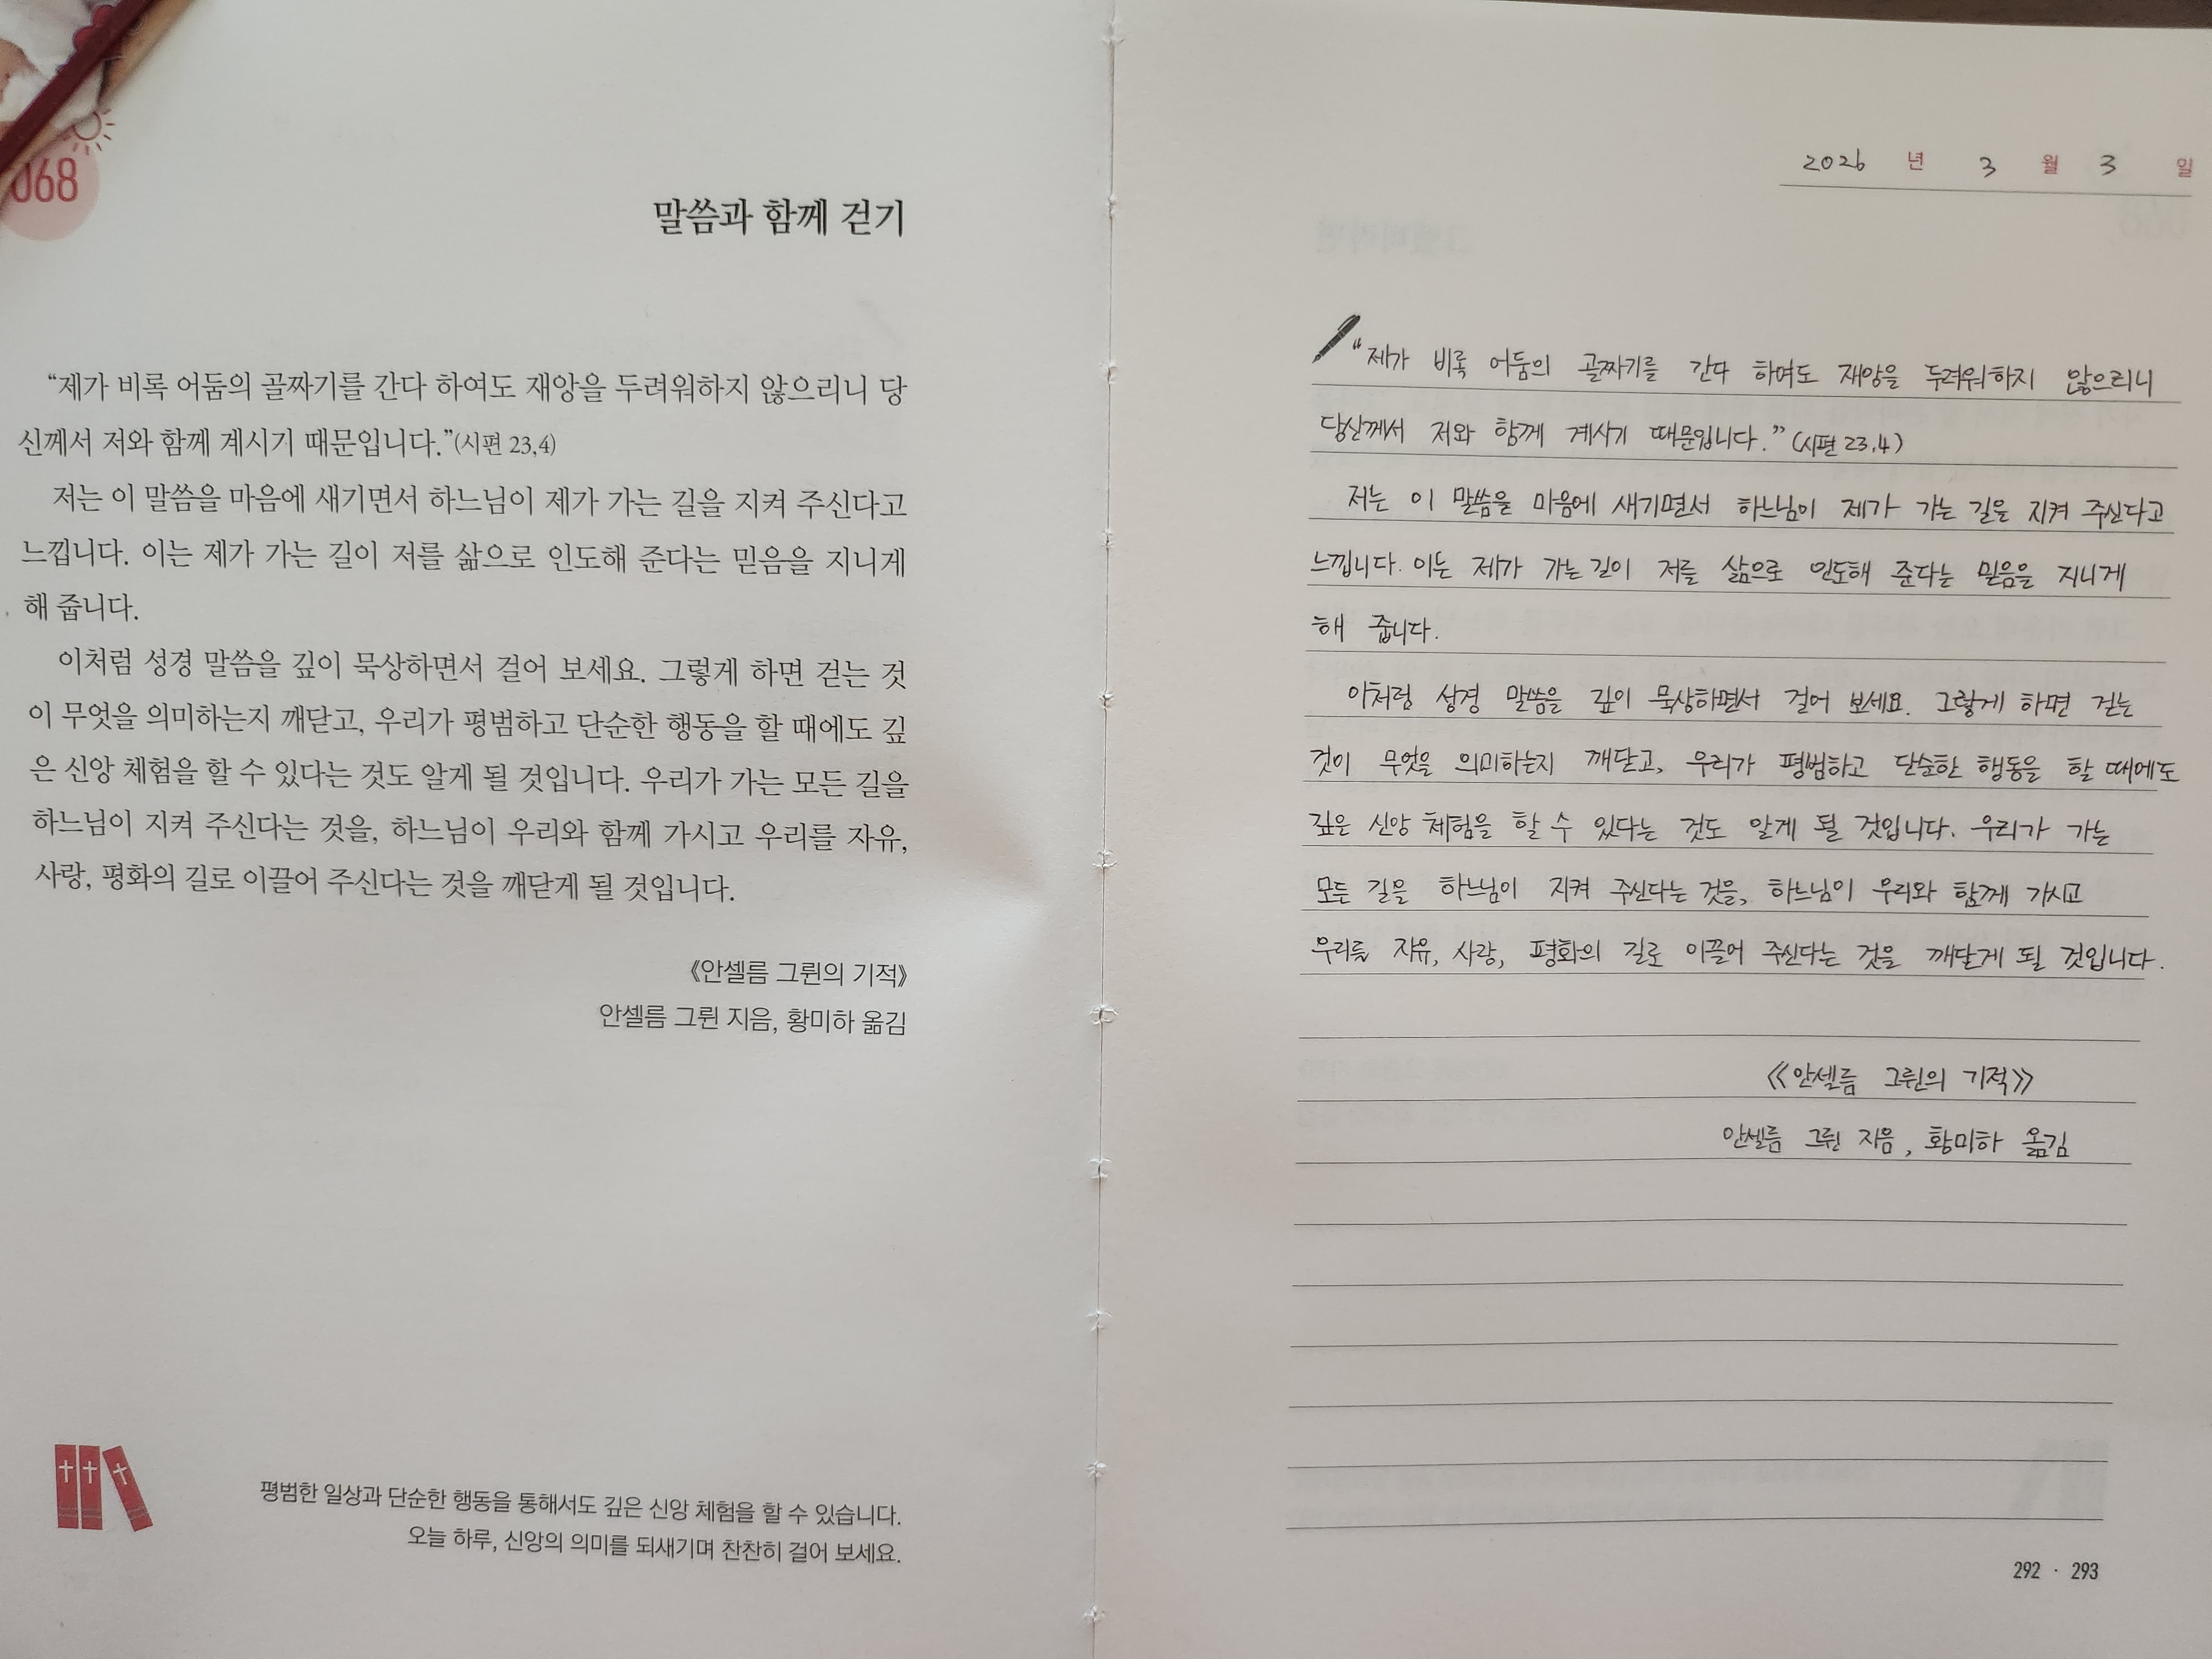 068
말씀과 함께 걷기
“제가 비록 어둠의 골짜기를 간다 하여도 재앙을 두려워하지 않으리니 당
신께서 저와 함께 계시기 때문입니다.”(시편 23,4)
저는 이 말씀을 마음에 새기면서 하느님이 제가 가는 길을 지켜 주신다고
느낍니다. 이는 제가 가는 길이 저를 삶으로 인도해 준다는 믿음을 지니게
해 줍니다.
이처럼 성경 말씀을 깊이 묵상하면서 걸어 보세요. 그렇게 하면 걷는 것
이 무엇을 의미하는지 깨닫고, 우리가 평범하고 단순한 행동을 할 때에도 깊
은 신앙 체험을 할 수 있다는 것도 알게 될 것입니다. 우리가 가는 모든 길을
하느님이 지켜 주신다는 것을, 하느님이 우리와 함께 가시고 우리를 자유,
사랑, 평화의 길로 이끌어 주신다는 것을 깨닫게 될 것입니다.
《안셀름 그륀의 기적》
안셀름 그륀 지음, 황미하 옮김
평범한 일상과 단순한 행동을 통해서도 깊은 신앙 체험을 할 수 있습니다.
오늘 하루, 신앙의 의미를 되새기며 찬찬히 걸어 보세요.
2026 년 3 월 3 일
“제가 비록 어둠의 골짜기를 간다 하여도 재앙을 두려워하지 않으리니
당신께서 저와 함께 계시기 때문입니다.” (시편 23,4)
저는 이 말씀을 마음에 새기면서 하느님이 제가 가는 길을 지켜 주신다고
느낍니다. 이는 제가 가는 길이 저를 삶으로 인도해 준다는 믿음을 지니게
해 줍니다.
이처럼 성경 말씀을 깊이 묵상하면서 걸어 보세요. 그렇게 하면 걷는
것이 무엇을 의미하는지 깨닫고, 우리가 평범하고 단순한 행동을 할 때에도
깊은 신앙 체험을 할 수 있다는 것도 알게 될 것입니다. 우리가 가는
모든 길을 하느님이 지켜 주신다는 것을, 하느님이 우리와 함께 가시고
우리를 자유, 사랑, 평화의 길로 이끌어 주신다는 것을 깨닫게 될 것입니다.
《안셀름 그륀의 기적》
안셀름 그륀 지음, 황미하 옮김
292 · 293